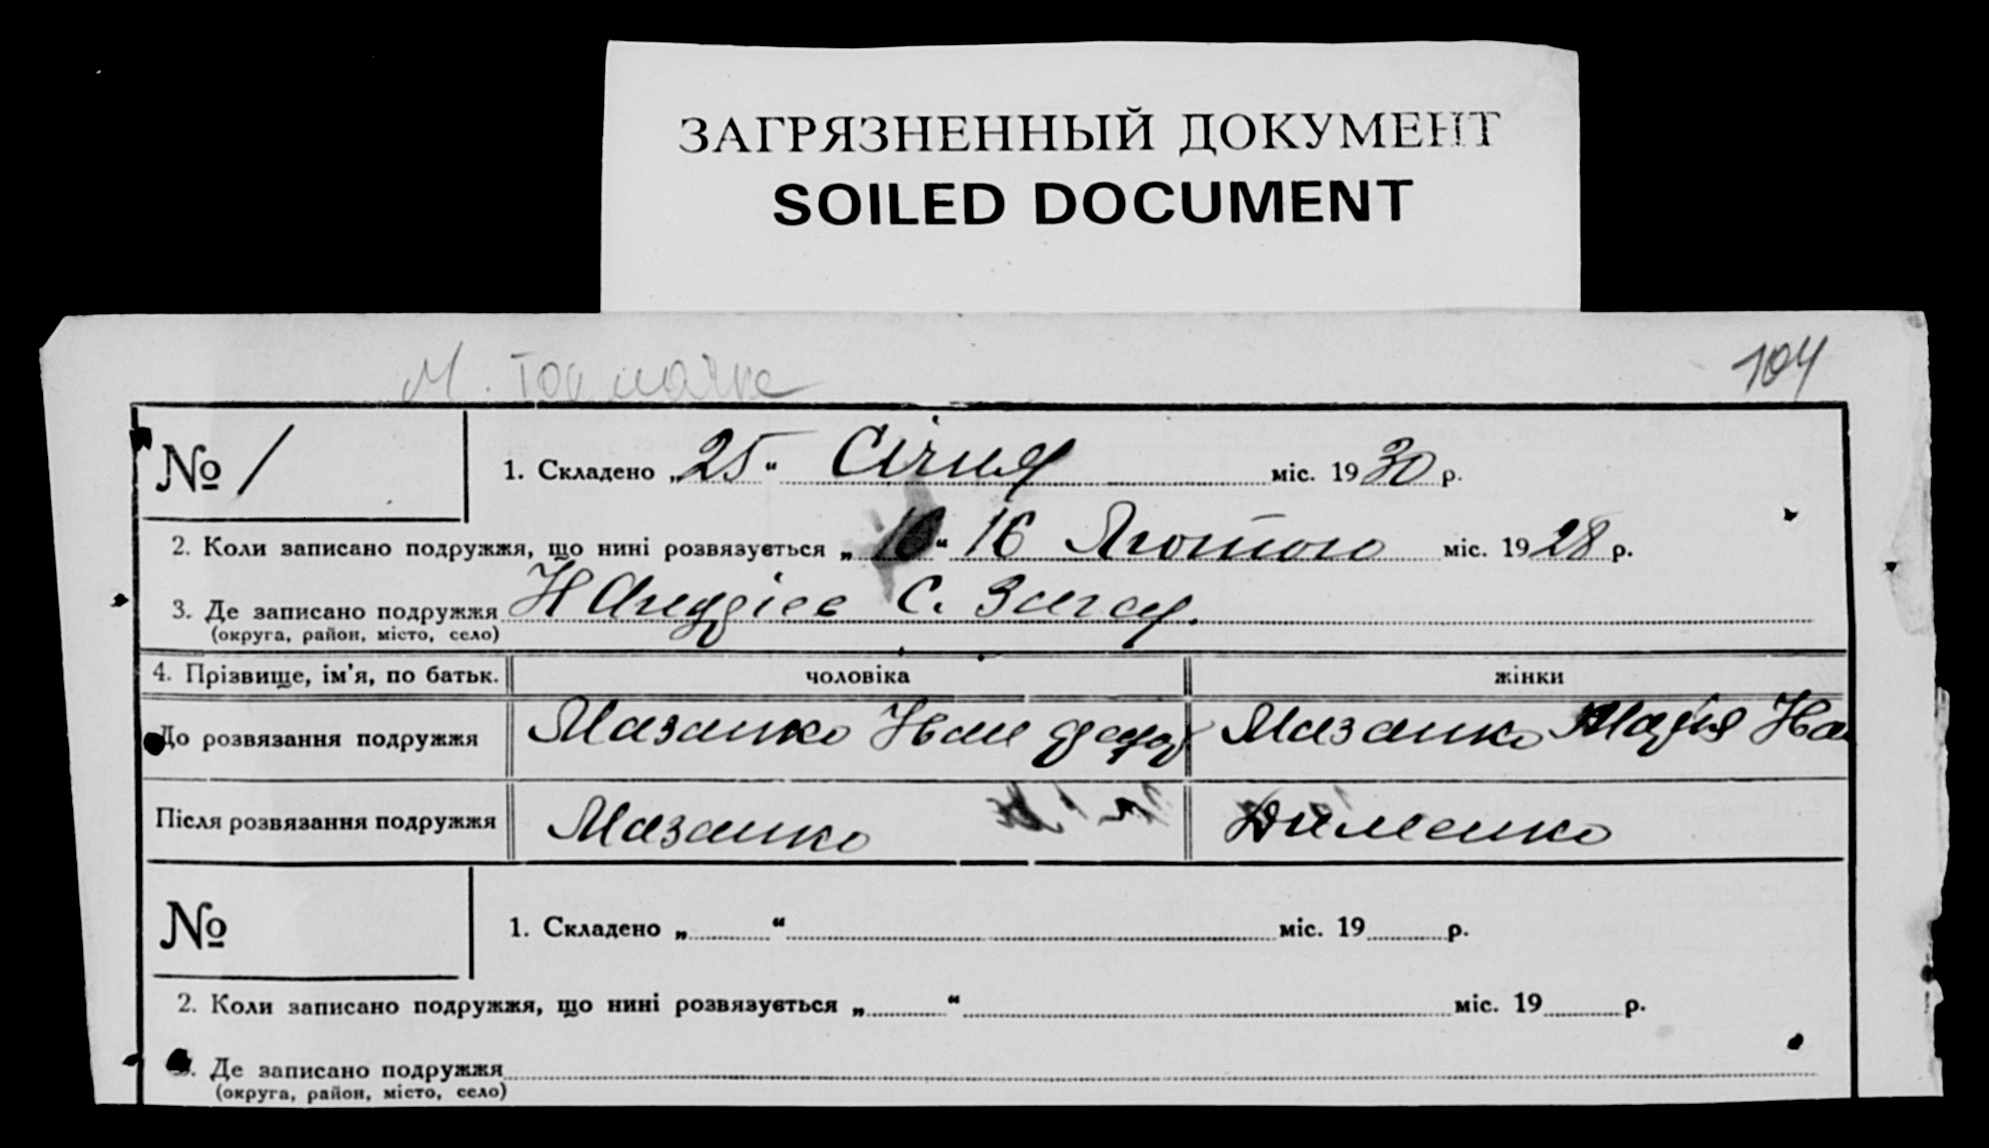 ЗАГРЯЗНЕННЫЙ ДОКУМЕНТ
SOILED DOCUMENT
М. Токмачка
104
№ 1
1. Складено „25“ Січня міс. 1930 р.
2. Коли записано подружжя, що нині розвязується „16“ 16 Лютого міс. 1928 р.
3. Де записано подружжя С. Загс
(округа, район, місто, село)
4. Прізвище, ім'я, по батьк. чоловіка жінки
До розвязання подружжя Мазанко Іван Мазанко Марія Іва
Після розвязання подружжя Мазанко Дименко
№
1. Складено „ “ міс. 19 р.
2. Коли записано подружжя, що нині розвязується „ “ міс. 19 р.
3. Де записано подружжя
(округа, район, місто, село)